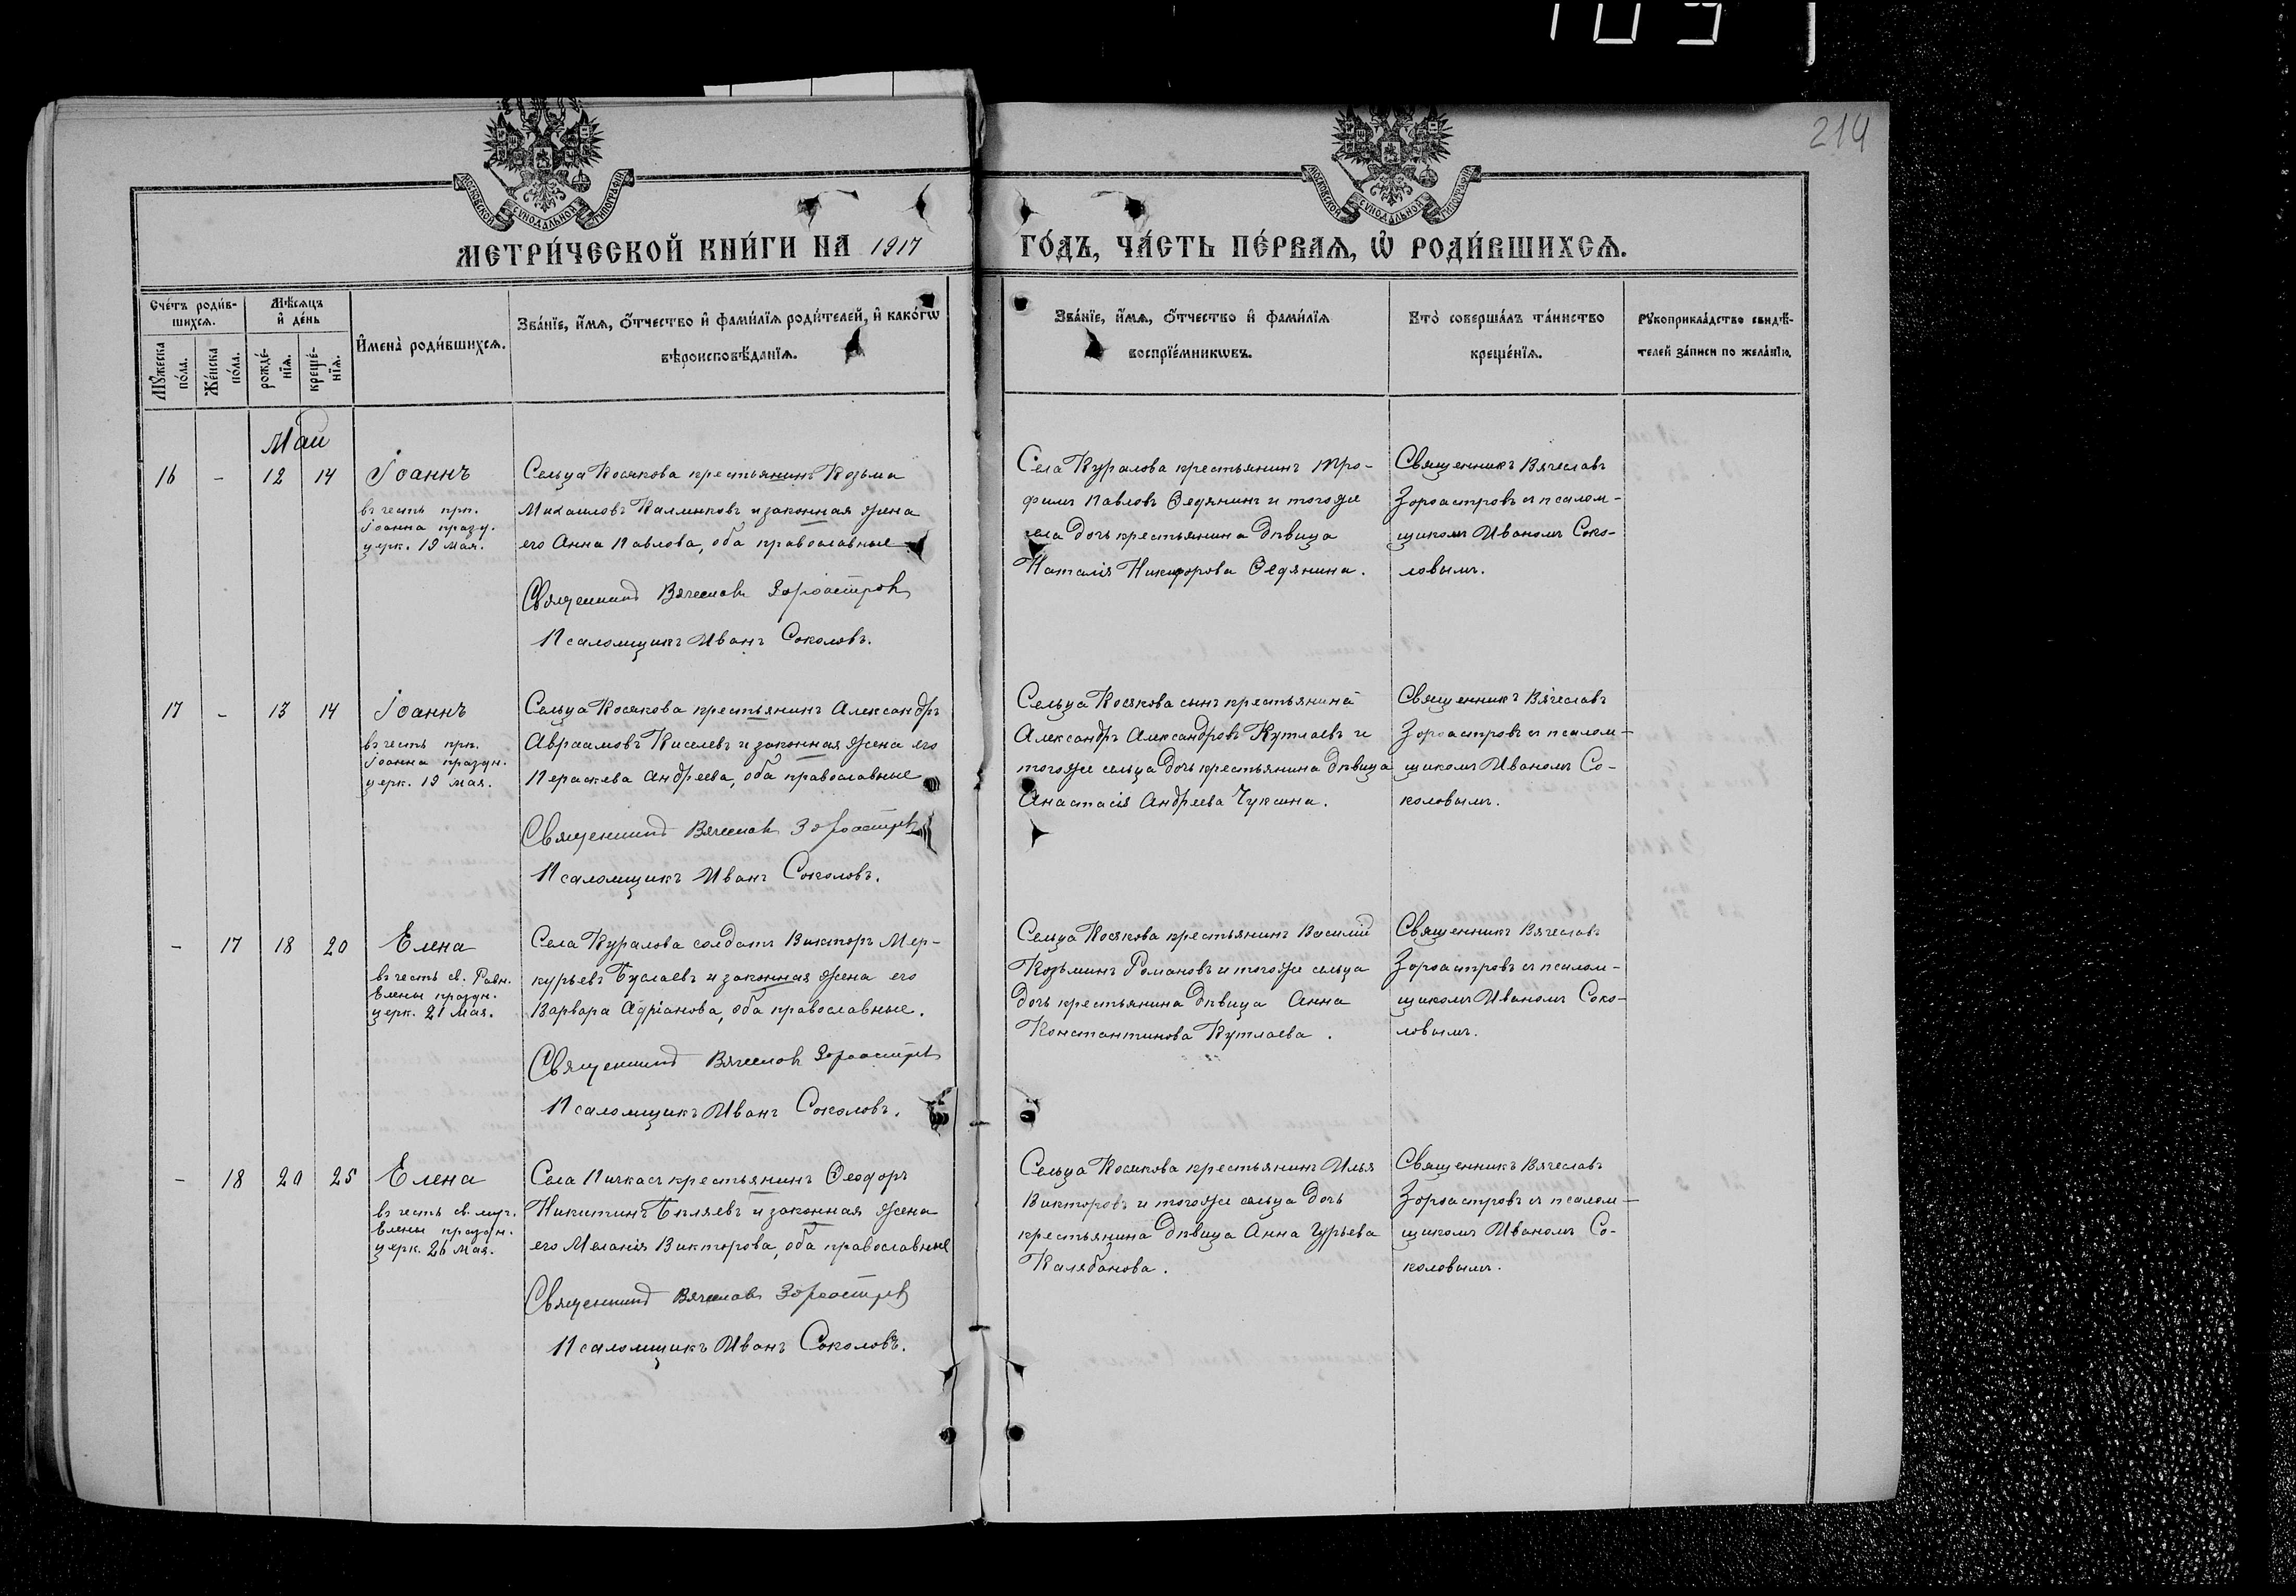 214
МОСКОВСКОЙ СУНОДАЛЬНОЙ ТИПОГРАФІИ
МОСКОВСКОЙ СУНОДАЛЬНОЙ ТИПОГРАФІИ
МЕТРИ́ЧЕСКОЙ КНИ́ГИ НА 1917
ГО́ДЪ, ЧА́СТЬ ПЕ́РВАЯ, Ѡ РОДИ́ВШИХСЯ.
Сче́тъ роди́в-
шихся.
Мѣсяцъ
и де́нь
Мꙋжеска
по́ла.
Же́нска
по́ла.
рожде́-
нїя.
креще́-
нїя.
И҆мена̀ роди́вшихся.
Зва́нїе, и҆́мя, ѻ҆́тчество и҆ фами́лїя роди́телей, и҆ како́гѡ
вѣроисповѣ́данїя.
Зва́нїе, и҆́мя, ѻ҆́тчество и҆ фами́лїя
воспрїе́мникѡвъ.
Кто̀ соверша́лъ та́инство
креще́нїя.
Рꙋкоприкла́дство свидѣ́-
телей за́писи по жела́нїю.
Май
16 - 12 14 Іоаннъ
въ честь прп.
Іоанна празд.
церк. 19 мая.
Сельца Косякова крестьянинъ Козьма
Михаиловъ Калинковъ и законная жена
его Анна Павлова, оба православные.
Священникъ Вячеславъ Зороастровъ
Псаломщикъ Иванъ Соколовъ.
Села Куралова крестьянинъ Тро-
фимъ Павловъ Ѳедянинъ и тогоже
села дочь крестьянина дѣвица
Наталія Никифорова Ѳедянина.
Священникъ Вячеславъ
Зороастровъ съ псалом-
щикомъ Иваномъ Соко-
ловымъ.
17 - 13 14 Іоаннъ
въ честь прп.
Іоанна праздн.
церк. 19 мая.
Сельца Косякова крестьянинъ Александръ
Авраамовъ Киселевъ и законная жена его
Параскева Андреева, оба православные
Священникъ Вячеславъ Зороастровъ
Псаломщикъ Иванъ Соколовъ.
Сельца Косякова сынъ крестьянина
Александръ Александровъ Кутлаевъ и
тогоже сельца дочь крестьянина дѣвица
Анастасія Андреева Чуксина.
Священникъ Вячеславъ
Зороастровъ съ псалом-
щикомъ Иваномъ Со-
коловымъ.
- 17 18 20 Елена
въ честь св. Равн.
Елены праздн.
церк. 21 мая.
Села Куралова солдатъ Викторъ Мер-
курьевъ Буслаевъ и законная жена его
Варвара Адріанова, оба православные.
Священникъ Вячеславъ Зороастровъ
Псаломщикъ Иванъ Соколовъ.
Сельца Косякова крестьянинъ Василій
Козьминъ Романовъ и тогоже сельца
дочь крестьянина дѣвица Анна
Константинова Кутлаева.
Священникъ Вячеславъ
Зороастровъ съ псалом-
щикомъ Иваномъ Соко-
ловымъ.
- 18 20 25 Елена
въ честь св. муч.
Елены праздн.
церк. 26 мая.
Села Пичкасъ крестьянинъ Ѳеодоръ
Никитинъ Бѣляевъ и законная жена
его Меланія Викторова, оба православные
Священникъ Вячеславъ Зороастровъ
Псаломщикъ Иванъ Соколовъ.
Сельца Косякова крестьянинъ Илья
Викторовъ и тогоже сельца дочь
крестьянина дѣвица Анна Гурьева
Калябанова.
Священникъ Вячеславъ
Зороастровъ съ псалом-
щикомъ Иваномъ Со-
коловымъ.